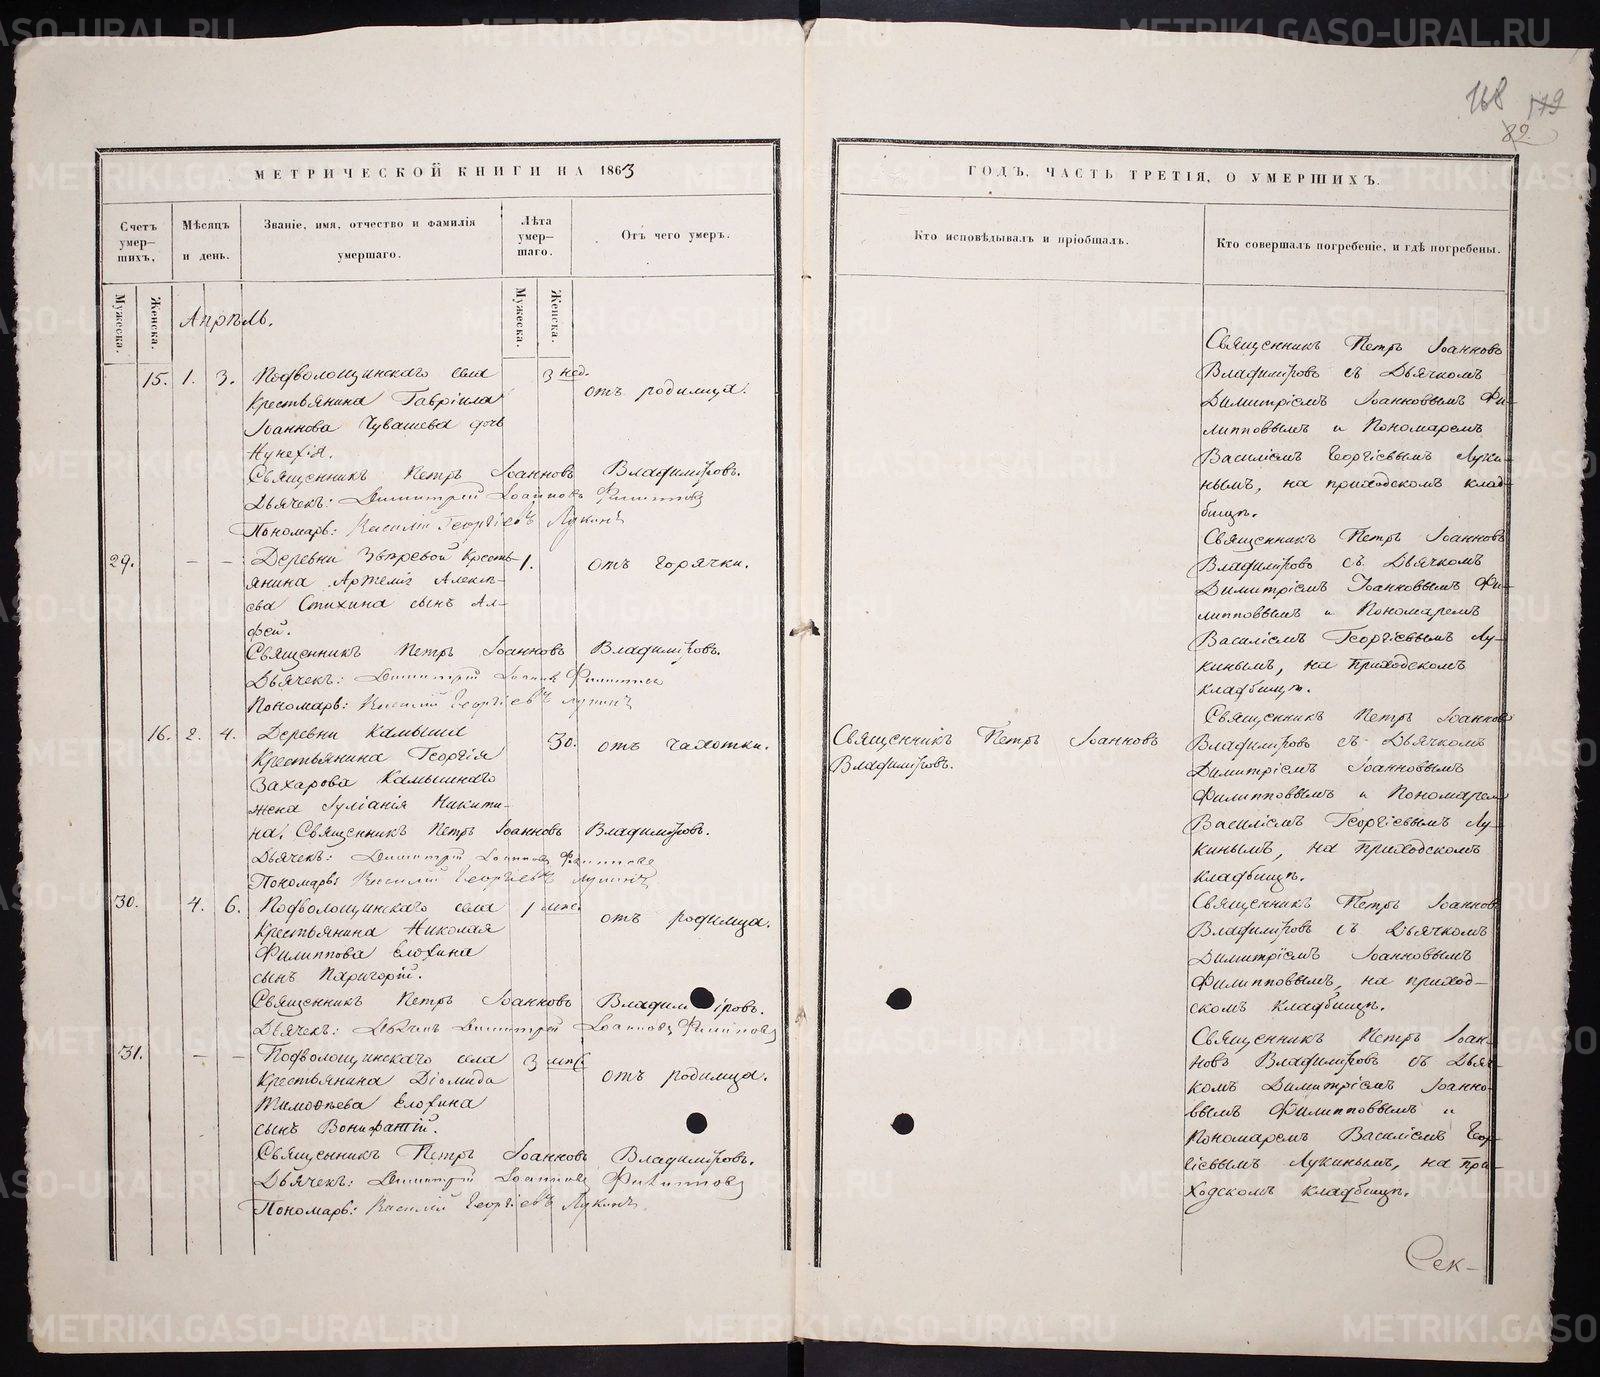 168 172
82.
МЕТРИЧЕСКОЙ КНИГИ НА 1863
Счетъ умер-шихъ.
Мѣсяцъ и день.
Званіе, имя, отчество и фамилія умершаго.
Лѣта умер-шаго.
Отъ чего умеръ.
Мужеска.
Женска.
Мужеска.
Женска.
Апрѣль.
15. 1. 3. Подволошинскаго села 3 нед. отъ родимца.
Крестьянина Гавріила
Іоаннова Чувашева дочь
Нунехія.
Священникъ Петръ Іоанновъ Владиміровъ.
Дьячекъ: Димитрій Іоанновъ Филипповъ
Пономарь: Василій Георгіевъ Лукинъ
29. — — Деревни Звѣревой Кресть- 1. отъ горячки.
янина Артемія Алексѣ-
ева Стихина сынъ Ал-
фей.
Священникъ Петръ Іоанновъ Владиміровъ.
Дьячекъ: Димитрій Іоанновъ Филипповъ
Пономарь: Василій Георгіевъ Лукинъ
16. 2. 4. Деревни Камыши 30. отъ чахотки.
Крестьянина Георгія
Захарова Камышнаго
жена Іуліанія Никити-
на. Священникъ Петръ Іоанновъ Владиміровъ.
Дьячекъ: Димитрій Іоанновъ Филипповъ
Пономарь: Василій Георгіевъ Лукинъ
30. 4. 6. Подволошинскаго села 1 мѣс. отъ родимца.
Крестьянина Николая
Филиппова Елохина
сынъ Паригорій.
Священникъ Петръ Іоанновъ Владиміровъ.
Дьячекъ: Димитрій Іоанновъ Филипповъ
31. — — Подволошинскаго села 3 мѣс. отъ родимца.
Крестьянина Діомида
Тимоѳеева Елохина
сынъ Вонифатій.
Священникъ Петръ Іоанновъ Владиміровъ.
Дьячекъ: Димитрій Іоанновъ Филипповъ
Пономарь: Василій Георгіевъ Лукинъ
ГОДЪ, ЧАСТЬ ТРЕТІЯ, О УМЕРШИХЪ.
Кто исповѣдывалъ и пріобщалъ.
Кто совершалъ погребеніе, и гдѣ погребены.
Священникъ Петръ Іоанновъ
Владиміровъ.
Священникъ Петръ Іоанновъ
Владиміровъ съ Дьячкомъ
Димитріемъ Іоанновымъ Фи-
липповымъ и Пономаремъ
Василіемъ Георгіевымъ Луки-
нымъ, на приходскомъ клад-
бищѣ.
Священникъ Петръ Іоанновъ
Владиміровъ съ Дьячкомъ
Димитріемъ Іоанновымъ Фи-
липповымъ и Пономаремъ
Василіемъ Георгіевымъ Лу-
кинымъ, на приходскомъ
кладбищѣ.
Священникъ Петръ Іоанновъ
Владиміровъ съ Дьячкомъ
Димитріемъ Іоанновымъ
Филипповымъ и Пономаремъ
Василіемъ Георгіевымъ Лу-
кинымъ, на приходскомъ
кладбищѣ.
Священникъ Петръ Іоанновъ
Владиміровъ съ Дьячкомъ
Димитріемъ Іоанновымъ
Филипповымъ, на приход-
скомъ кладбищѣ.
Священникъ Петръ Іоан-
новъ Владиміровъ съ Дьяч-
комъ Димитріемъ Іоанно-
вымъ Филипповымъ и
Пономаремъ Василіемъ Геор-
гіевымъ Лукинымъ, на при-
ходскомъ кладбищѣ.
Сек-
METRIKI.GASO-URAL.RU